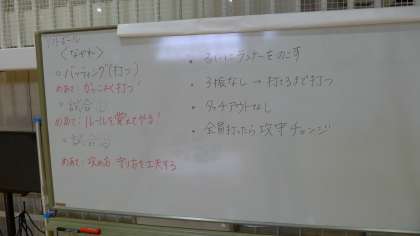 ソフトボール
<ながれ>
○バッティング(打つ)
めあて:かっこよく打つ!
○試合①
めあて:ルールを覚えてやる!
○試合②
めあて:攻め方 守り方を工夫する
・るいにランナーをのこす
・3振なし→打てるまで打つ
・タッチアウトなし
・全員打ったら攻守チェンジ